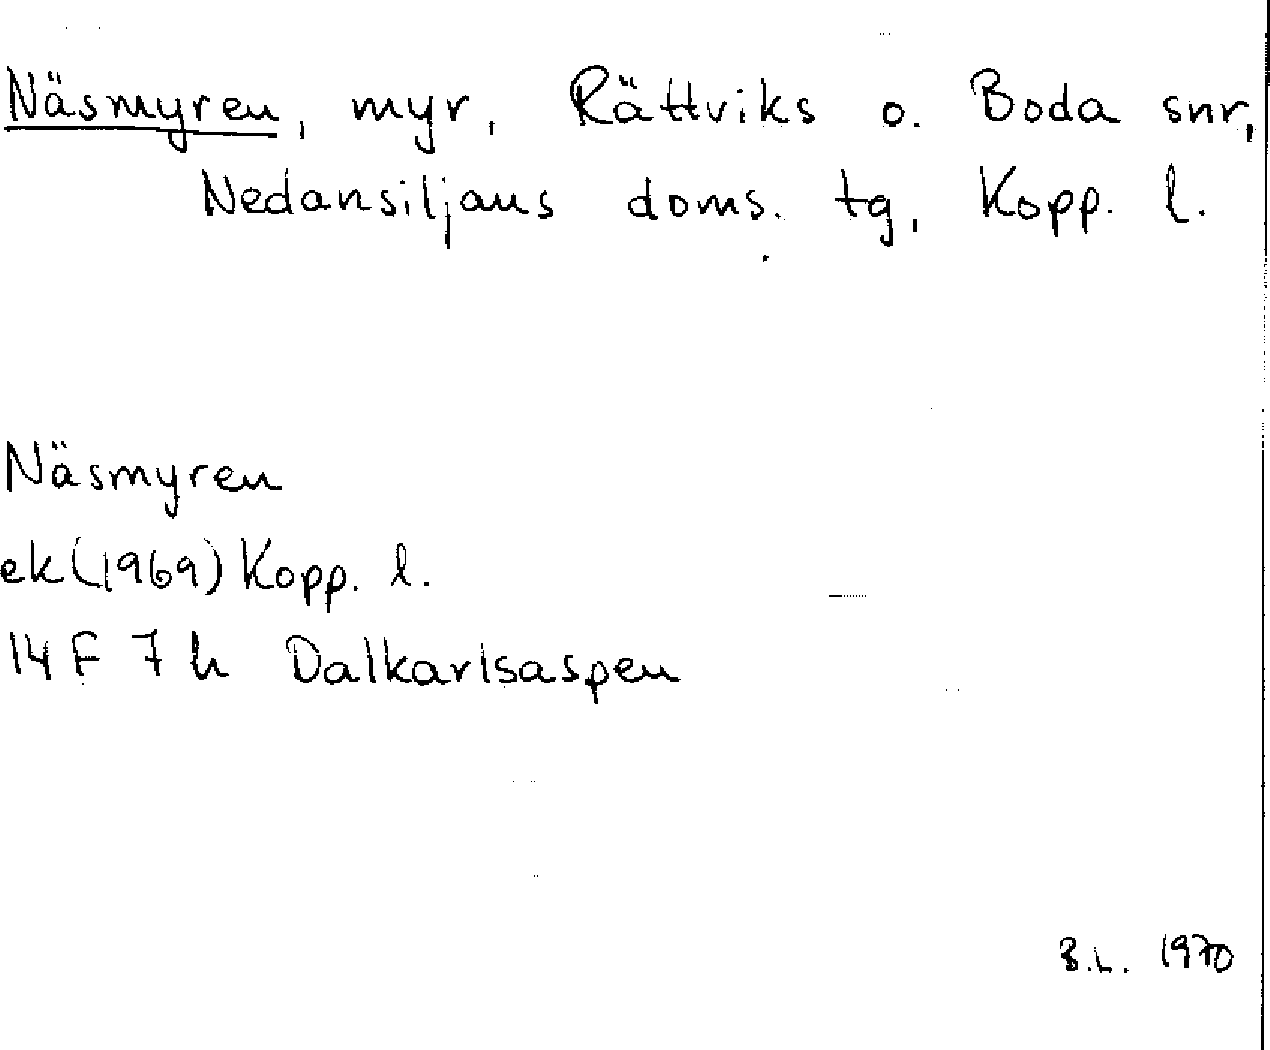 Näsmyren, myr, Rättviks o. Boda snr,
Nedansiljans doms. tg, Kopp. l.
Näsmyren
ek (1969) Kopp. l.
14 F 7 h Dalkarlsaspen
B.L. 1970